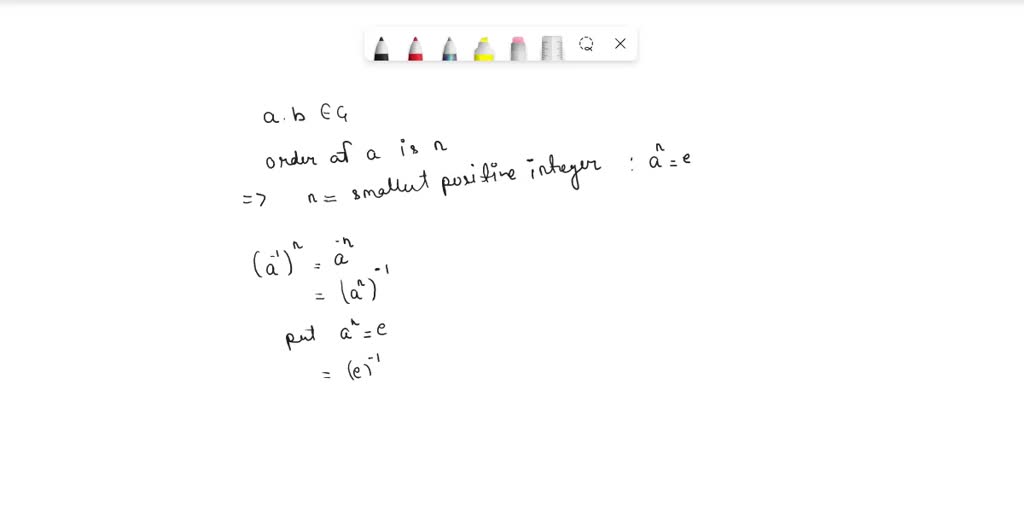 a.b ∈ G
order of a is n
=> n = smallest positive integer : aⁿ = e
(a⁻¹)ⁿ = a⁻ⁿ
= (aⁿ)⁻¹
put aⁿ = e
= (e)⁻¹